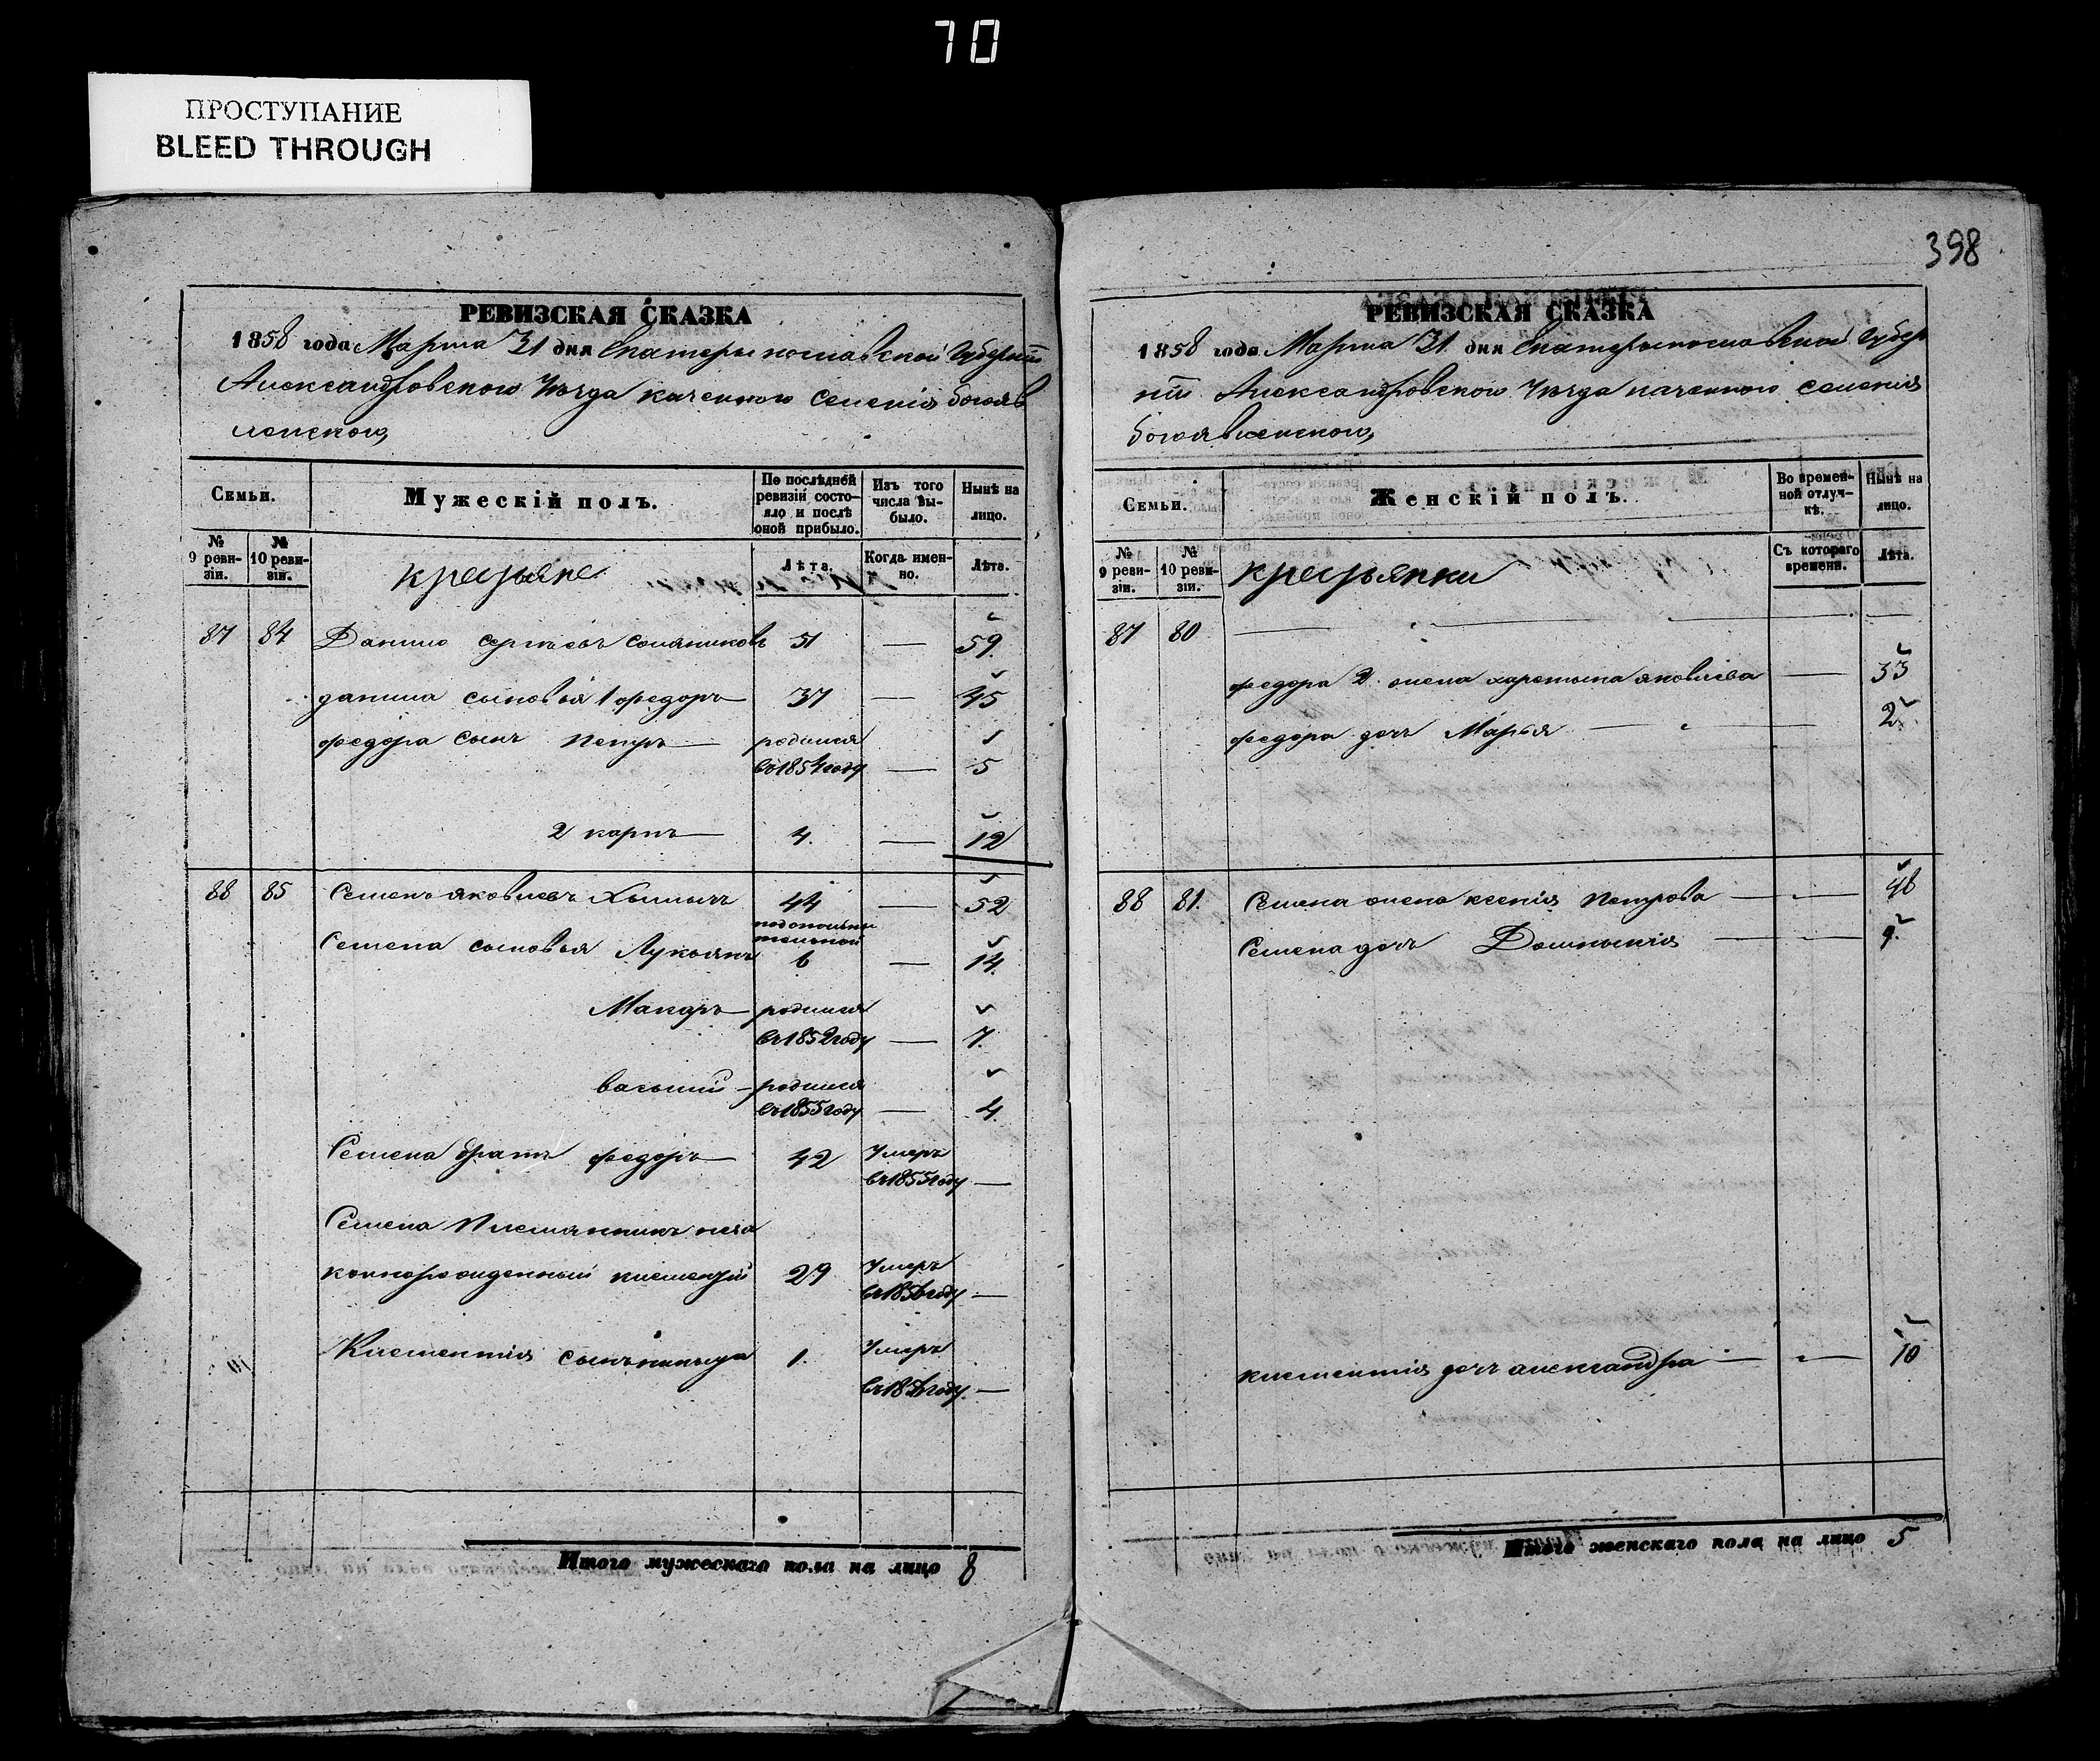 70
ПРОСТУПАНИЕ
BLEED THROUGH
РЕВИЗСКАЯ СКАЗКА
1858 года Марта 31 дня Екатеринославской Губерніи
Александровского Уѣзда казенного Селенія Богояв
ленского,
Семьи.
Мужескій полъ.
По послѣдней ревизіи состояло и послѣ оной прибыло.
Изъ того числа выбыло.
Нынѣ на лицо.
№ 9 ревизіи.
№ 10 ревизіи.
крестьяне
Лѣта.
Когда именно.
Лѣта.
87 84 Данило Сергѣевъ 51 — 59.
данила сыновья 1 федоръ 37 — 45
федора сынъ Петръ — родился
въ 1854 году — 5
2 карпъ — 4. — 12
88 85 Семенъ яковлевъ 44 — 52
Семена сыновья Лукьянъ
подополни
тельной
6 — 14.
Макаръ — родился
въ 1852 году — 7.
василій — родился
въ 1855 году — 4.
Семена братъ федоръ — 42 Умеръ
въ 1855 году —
Семена Племянникъ
клементій 29 Умеръ
въ 1856 году —
Клементія сынъ никита 1. Умеръ
году. —
Итого мужескаго пола на лицо 8
398
РЕВИЗСКАЯ СКАЗКА
1858 года Марта 31 дня Екатеринославской Губер
ніи Александровского Уѣзда казенного селенія
Богоявленского,
Семьи.
Женскій полъ.
Во временной отлучкѣ.
Нынѣ на лицо.
№ 9 ревизіи.
№ 10 ревизіи.
крестьянки
Съ котораго времени.
Лѣта.
87 80 — —
федора 2 жена харетына яковлева — 33
федора дочь Марья — 2
88 81. Семена жена ксенія Петрова — 48
Семена дочь Домникія — 9.
клементія дочь александра — 10
Итого женскаго пола на лицо 5